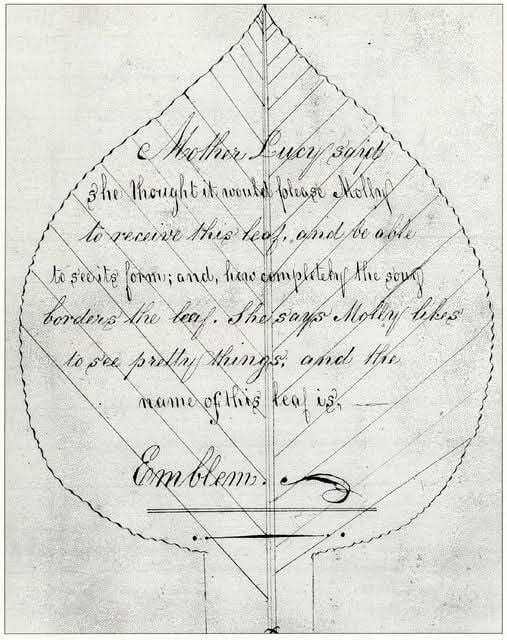 Mother Lucy said
she thought it would please Molly
to receive this leaf, and be able
to see its form; and, how completely the song
borders the leaf. She says Molly likes
to see pretty things, and the
name of this leaf is,
Emblem.